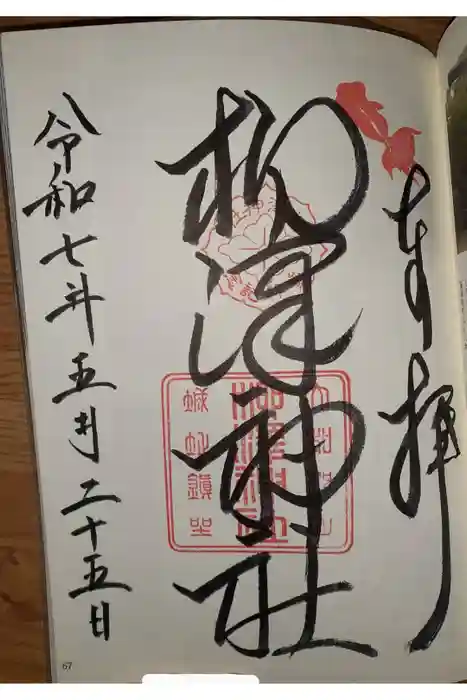 奉拝
柳津神社
令和七年五月二十五日
鎮坐
67